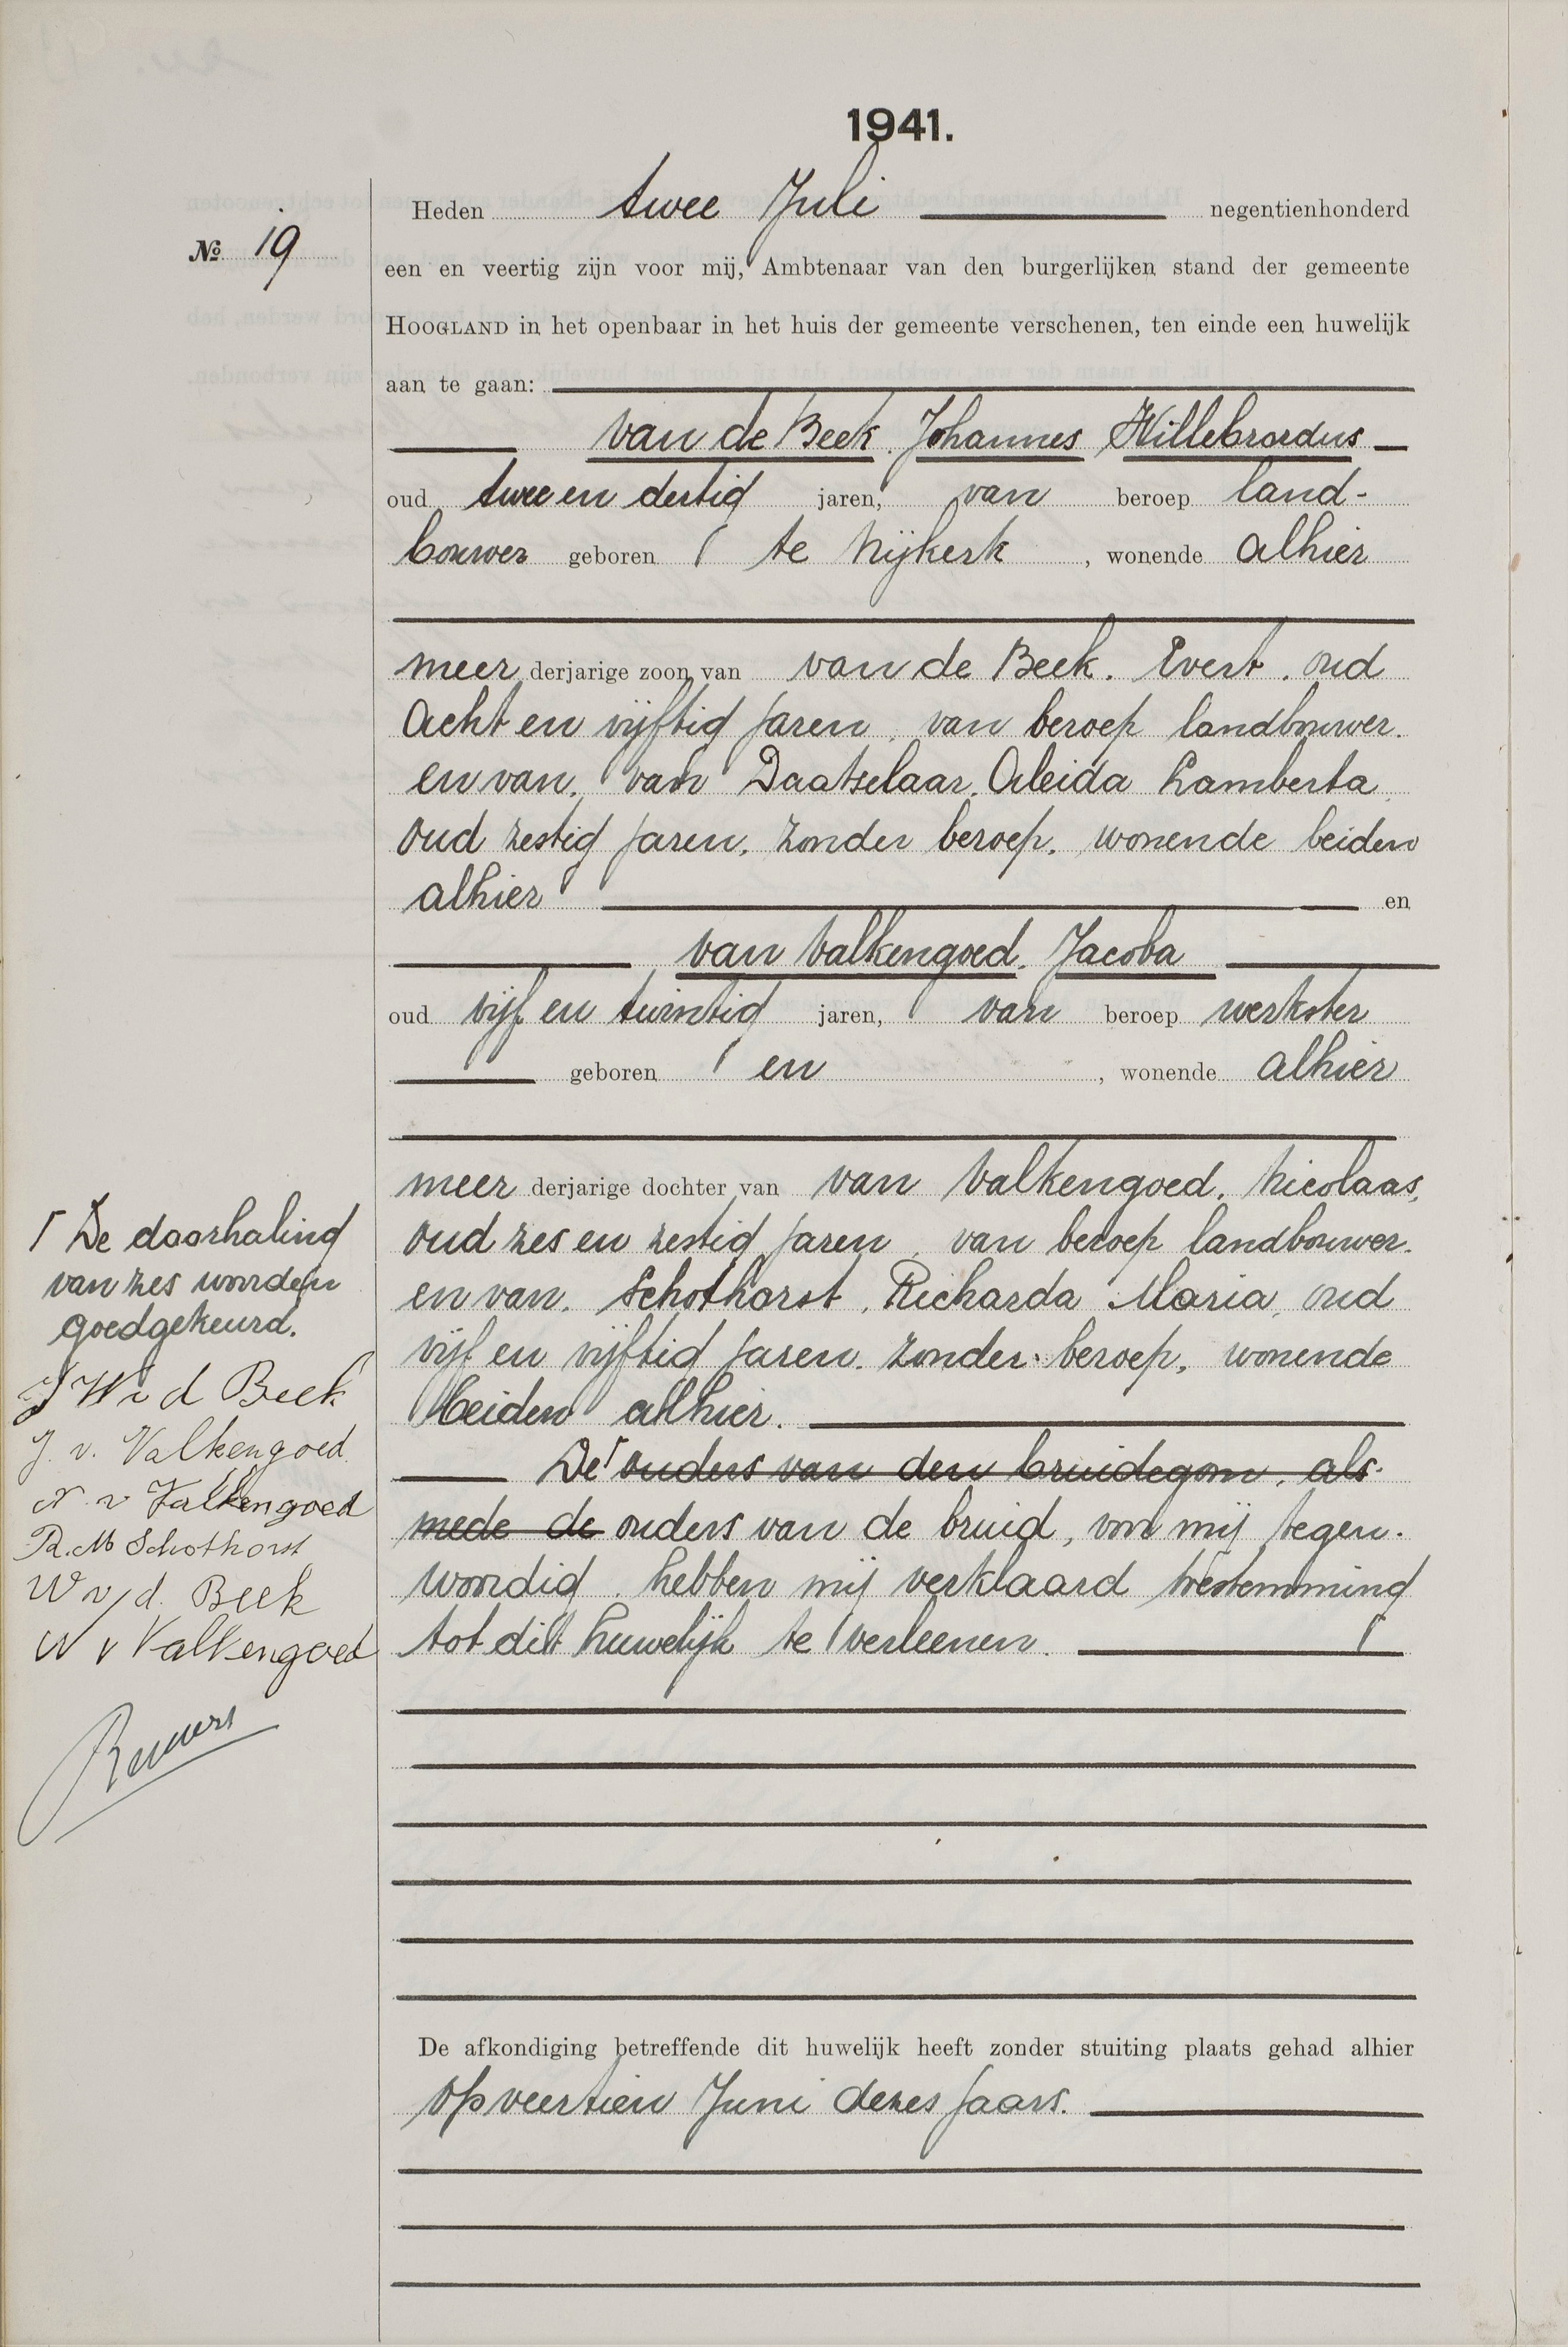 1941.
№ 19
Heden twee Juli negentienhonderd
een en veertig zijn voor mij, Ambtenaar van den burgerlijken stand der gemeente
HOOGLAND in het openbaar in het huis der gemeente verschenen, ten einde een huwelijk
aan te gaan:
van de Beek. Johannes Willebrordus
oud twee en dertig jaren, van beroep land-
bouwer geboren te Nijkerk, wonende alhier
meer derjarige zoon van van de Beek. Evert. oud
acht en vijftig jaren, van beroep landbouwer.
en van, van Daatselaar. Aleida Lamberta,
oud zestig jaren, zonder beroep, wonende beiden
alhier en
van Valkengoed. Jacoba
oud vijf en twintig jaren, van beroep werkster
geboren en, wonende alhier
meer derjarige dochter van van Valkengoed. Nicolaas,
oud zes en zestig jaren, van beroep landbouwer.
en van. Schothorst, Richarda Maria, oud
vijf en vijftig jaren. zonder beroep, wonende
beiden alhier.
De ouders van den bruidegom, als-
mede de ouders van de bruid, voor mij tegen-
woordig, hebben mij verklaard toestemming
tot dit huwelijk te verleenen.
De afkondiging betreffende dit huwelijk heeft zonder stuiting plaats gehad alhier
op veertien Juni dezes jaars.
De doorhaling
van zes woorden
goedgekeurd.
J W v d Beek
J. v. Valkengoed
N v Valkengoed
R. M Schothorst
W v/d. Beek
W v Valkengoed